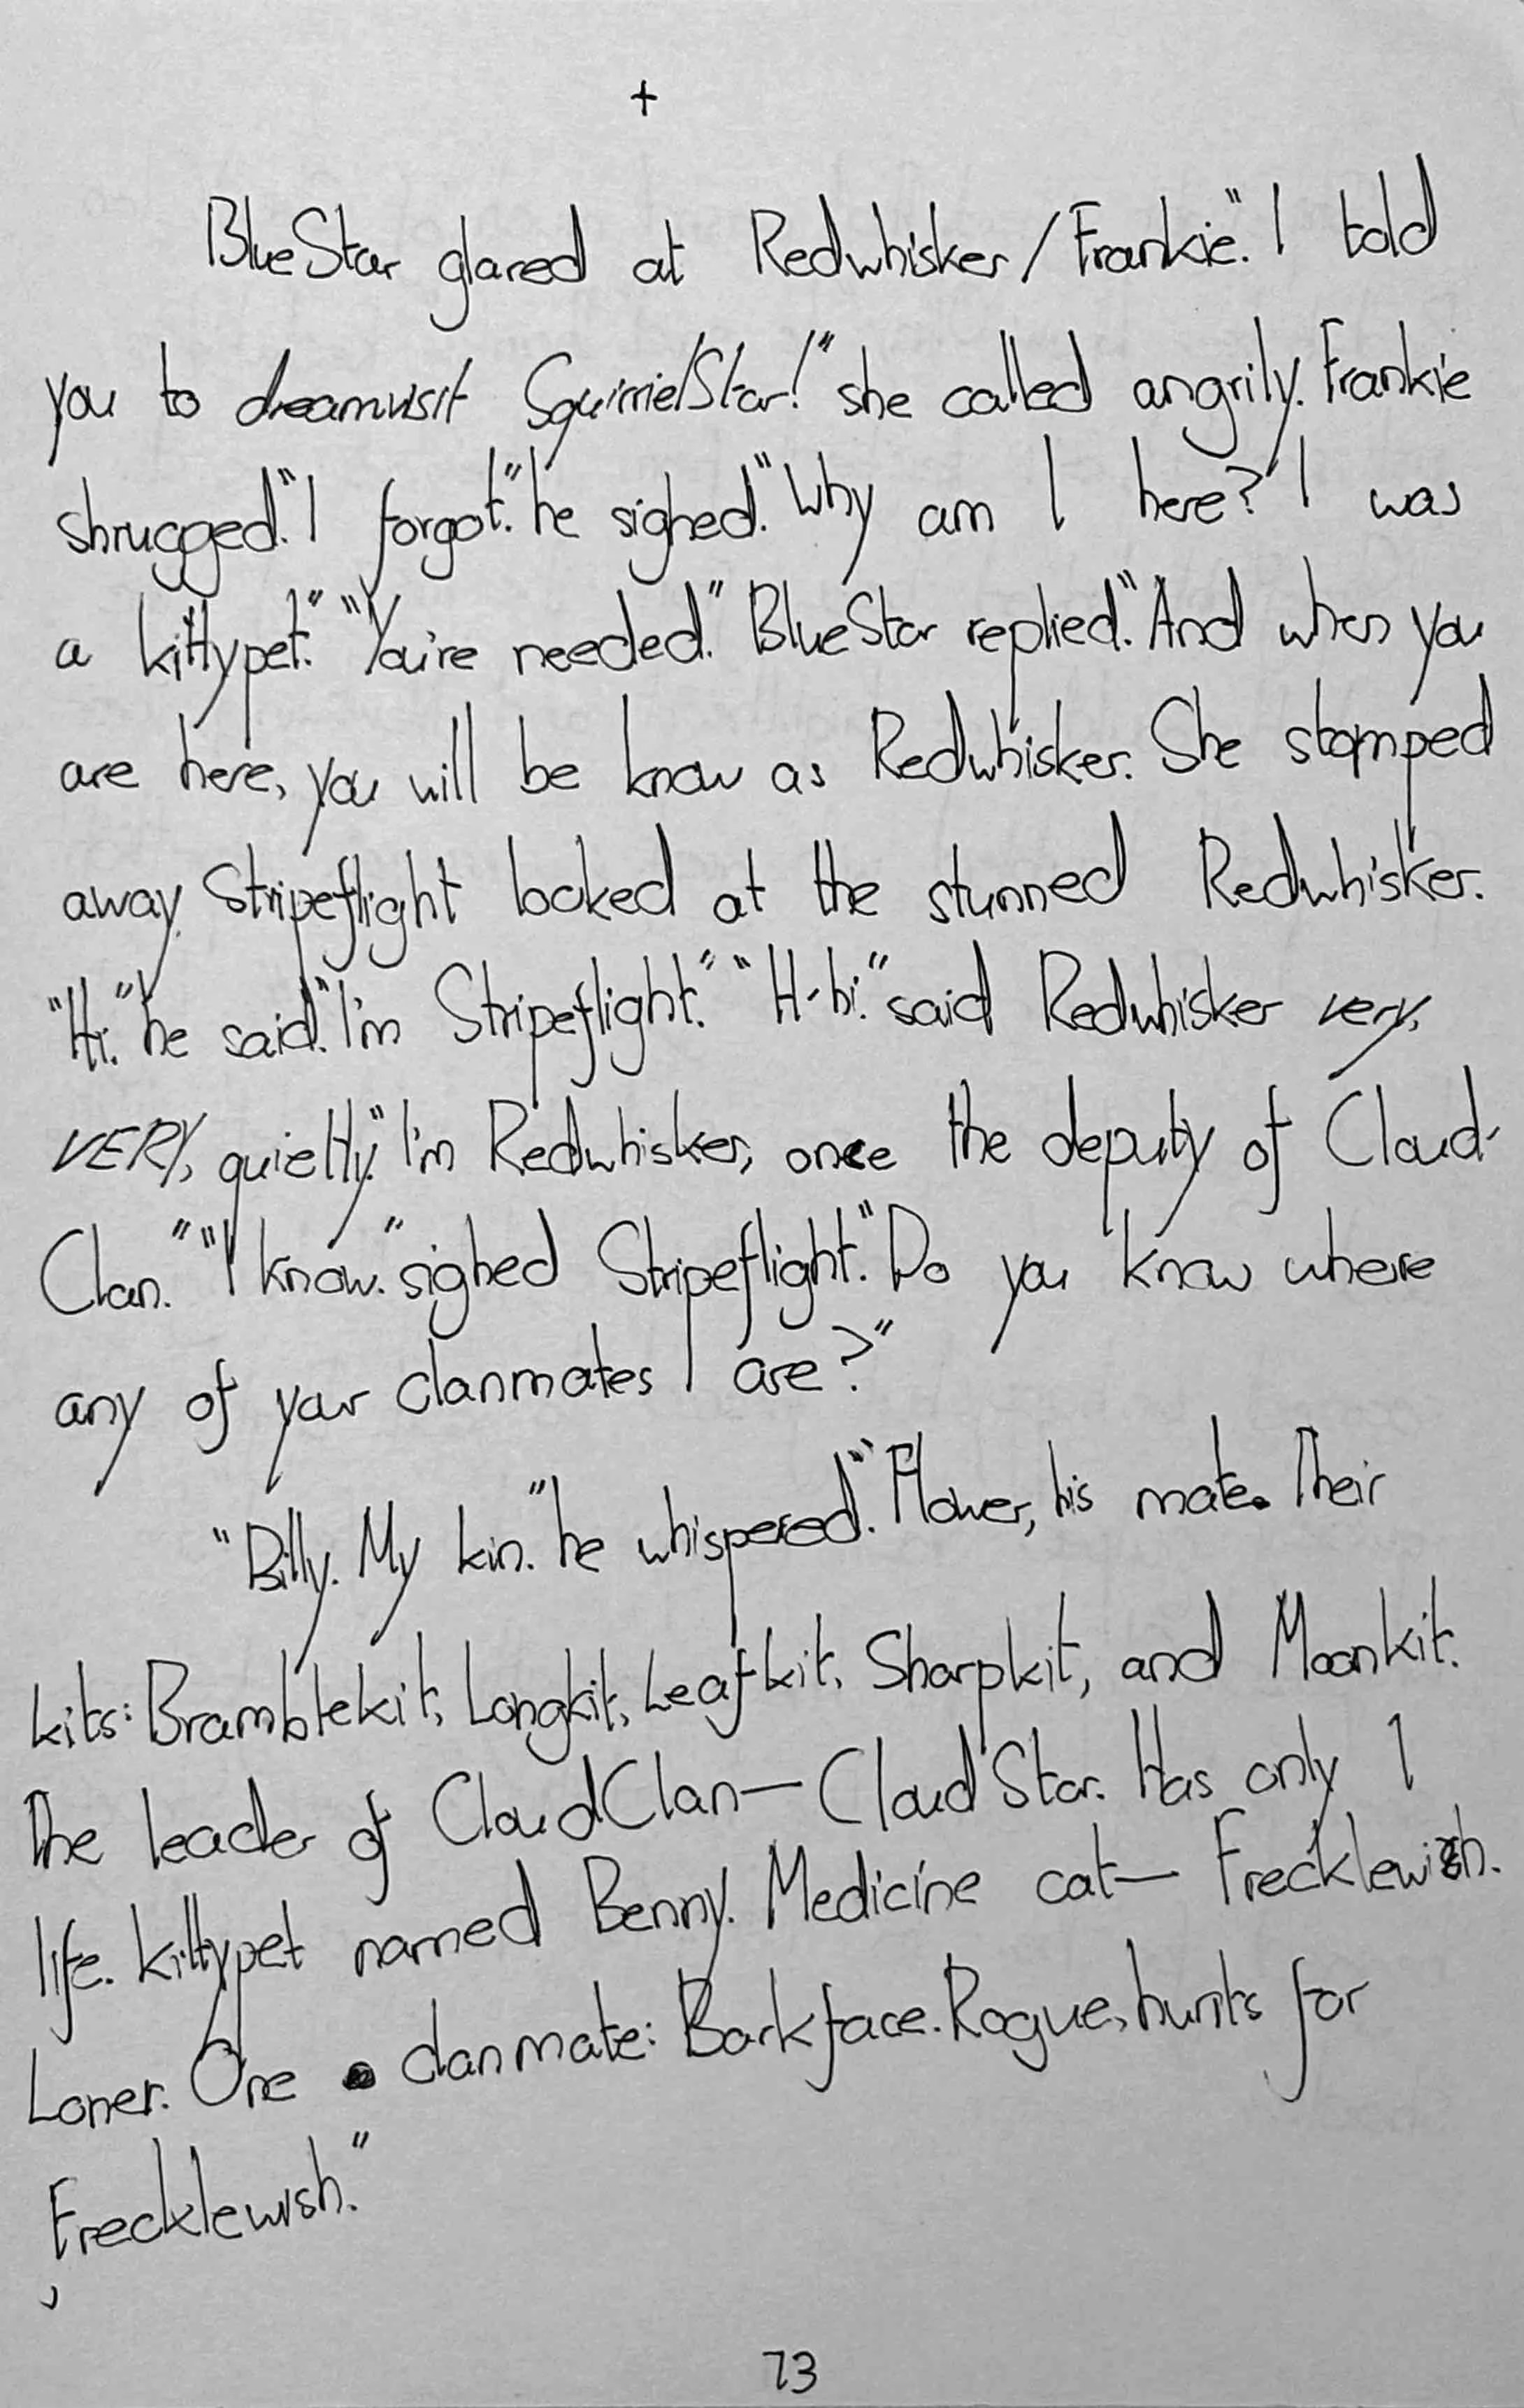 +
BlueStar glared at Redwhisker/Frankie." I told
you to dreamvisit SquirrielStar!" she called angrily. Frankie
shrugged."I forgot."he sighed."Why am I here? I was
a kittypet." "You're needed." BlueStar replied."And when you
are here, you will be know as Redwhisker. She stomped
away. Stripeflight looked at the stunned Redwhisker.
"Hi."he said."I'm Stripeflight." "H-hi." said Redwhisker very,
VERY, quietly."I'm Redwhisker, once the deputy of Cloud-
Clan." "I know."sighed Stripeflight."Do you know where
any of your clanmates are?"
"Billy. My kin."he whispered."Flower, his mate. Their
kits: Bramblekit, Longkit, Leafkit, Sharpkit, and Moonkit.
The leader of CloudClan—CloudStar. Has only 1
life. Kittypet named Benny. Medicine cat— Frecklewish.
Loner. One clanmate: Barkface. Rogue, hunts for
Frecklewish."
73